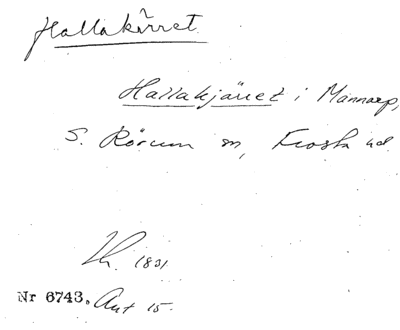 Hallakärret
Hallakjäret i Mannarp,
S. Rörum sn, Frosta hd
Lh. 1831
Nr 6743. Ant 15.